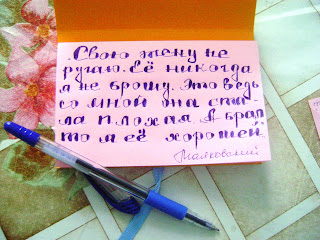 Свою жену не
ругаю. Её никогда
я не брошу. Это ведь
со мной она ста-
ла плохая. А брал
то я её хорошей.
Маяковский